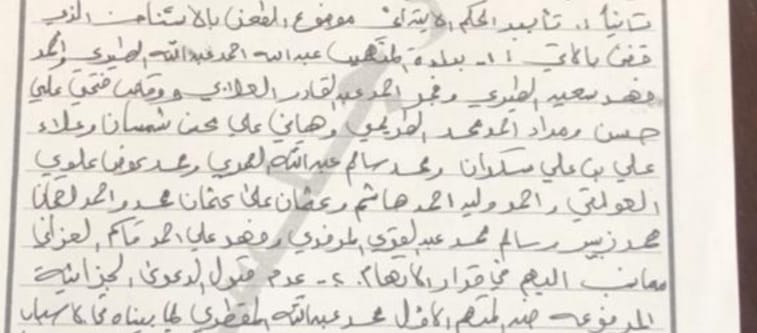 ثانياً: تأييد الحكم الابتدائي موضوع الطعن بالاستئناف الذي
قضى بالآتي: ١- براءة المتهمين عبدالله احمد عبدالله الطيري و
فهد سعيد الطيري و احمد عبدالقادر و فتحي علي
حسن ومراد محمد وهاني علي محسن شمسان وعلاء
علي بن علي سكران ومحمد سالم عبدالله ومحمد عوض علوي
العولقي واحمد وليد احمد هاشم وعثمان علي عثمان محمد واحمد
محمد زبير وسالم محمد عبدالقوي المرفدي وفهد علي احمد قاسم العزاني
مما نسب اليهم في قرار الاتهام. ٢- عدم قبول الدعوى الجزائية
المرفوعه ضد المتهم الأول محمد عبدالله لما بيناه في الاسباب